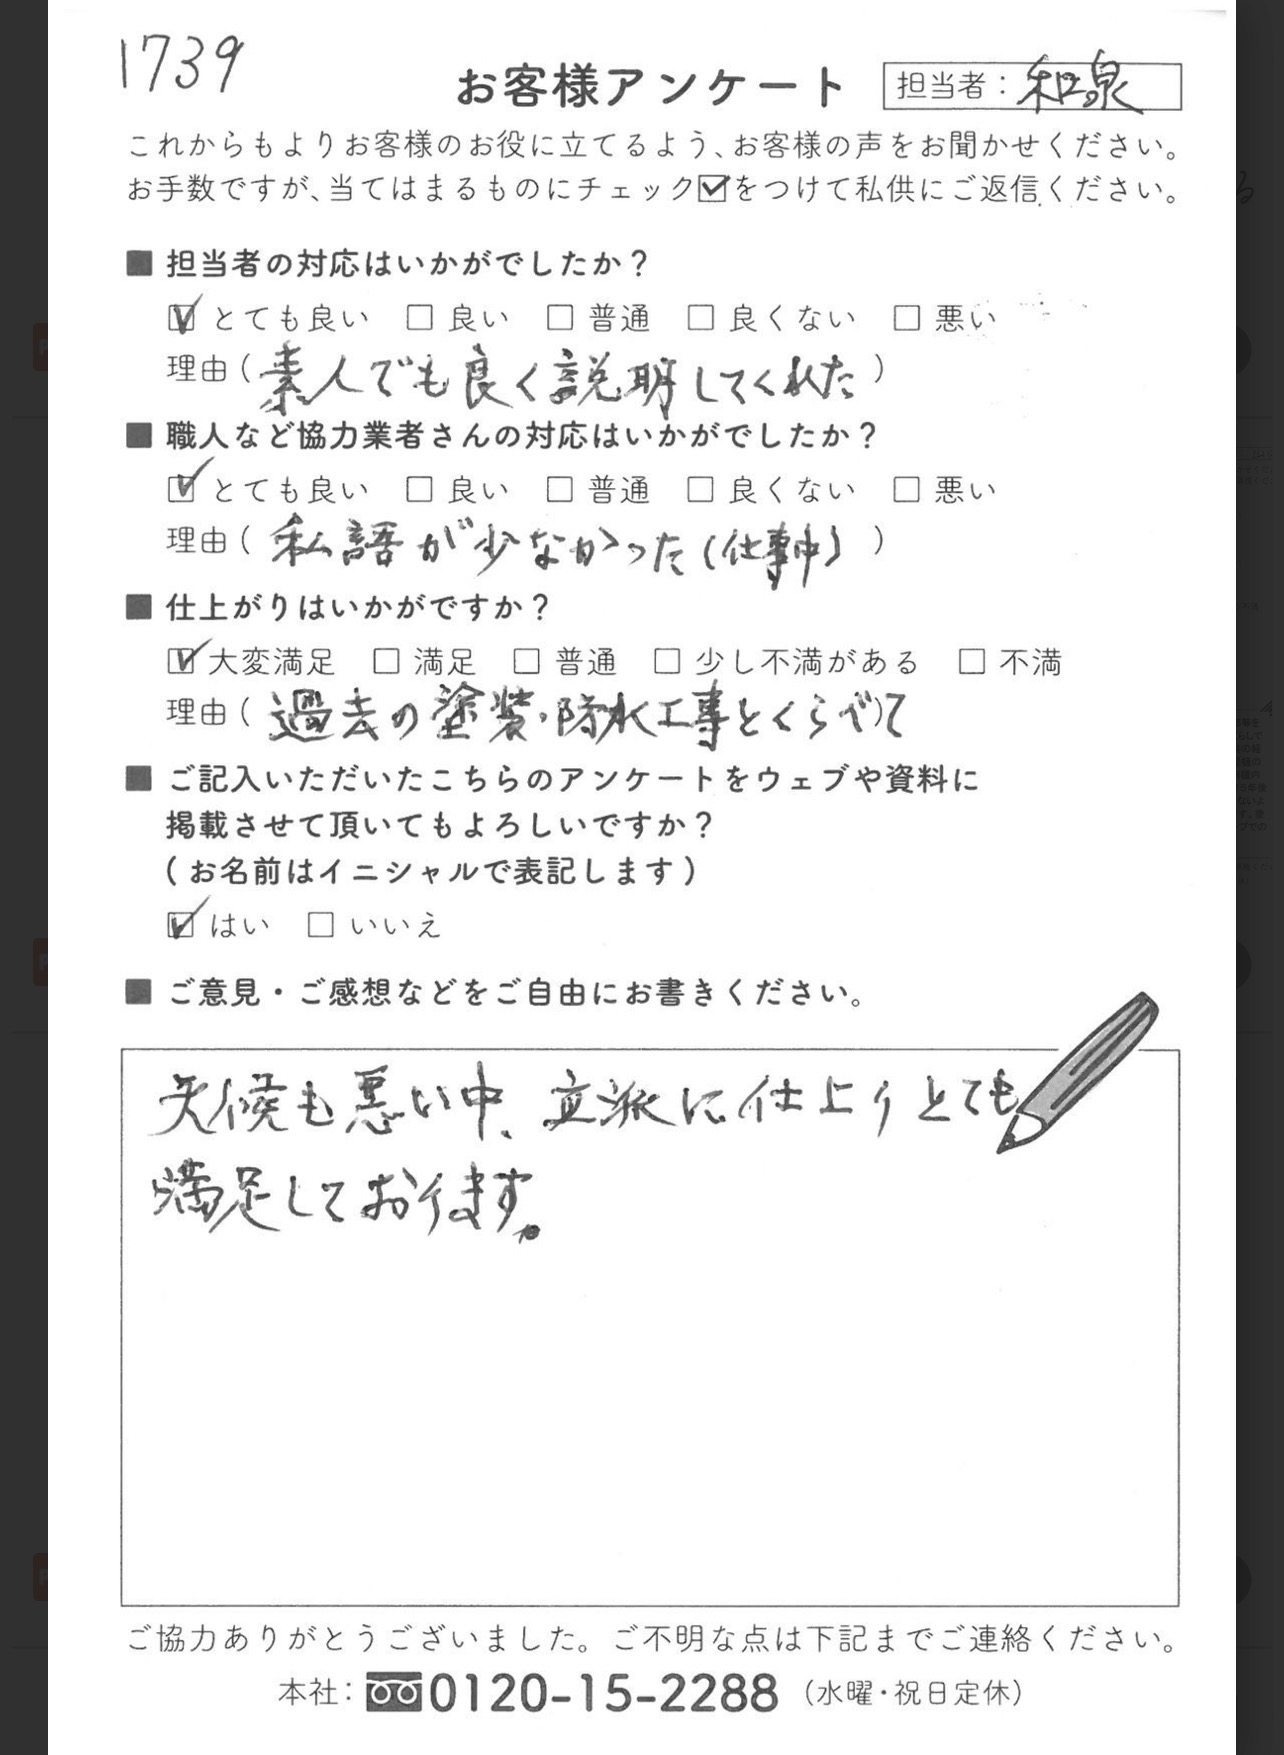 1739
お客様アンケート 担当者：和泉
これからもよりお客様のお役に立てるよう、お客様の声をお聞かせください。
お手数ですが、当てはまるものにチェック☑をつけて私供にご返信ください。
■ 担当者の対応はいかがでしたか？
☑ とても良い □ 良い □ 普通 □ 良くない □ 悪い
理由（素人でも良く説明してくれた）
■ 職人など協力業者さんの対応はいかがでしたか？
☑ とても良い □ 良い □ 普通 □ 良くない □ 悪い
理由（私語が少なかった（仕事中））
■ 仕上がりはいかがですか？
☑ 大変満足 □ 満足 □ 普通 □ 少し不満がある □ 不満
理由（過去の塗装・防水工事とくらべて）
■ ご記入いただいたこちらのアンケートをウェブや資料に
掲載させて頂いてもよろしいですか？
（お名前はイニシャルで表記します）
☑ はい □ いいえ
■ ご意見・ご感想などをご自由にお書きください。
天候も悪い中、立派に仕上りとても
満足しております。
ご協力ありがとうございました。ご不明な点は下記までご連絡ください。
本社：0120-15-2288（水曜・祝日定休）